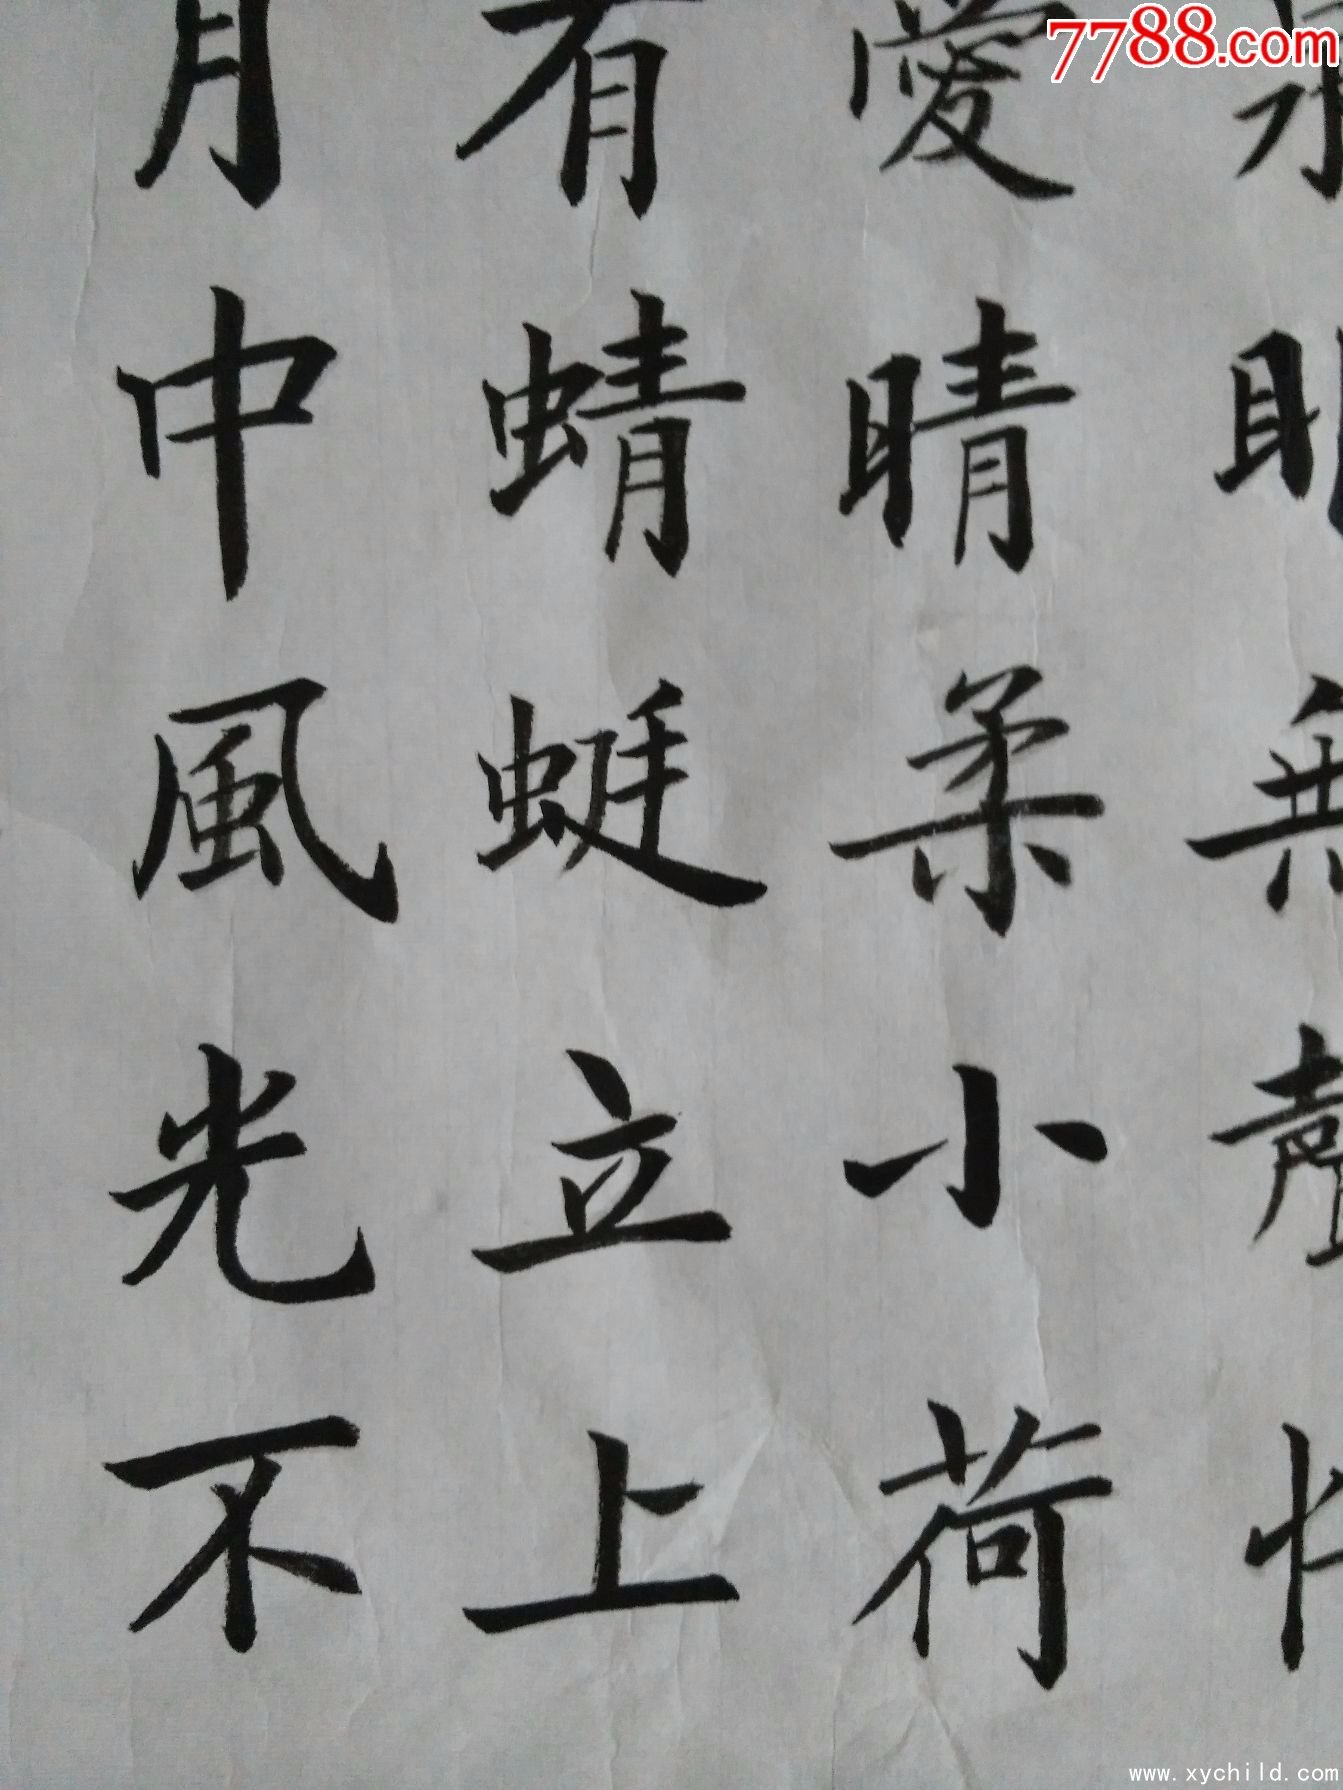 泉眼無聲惜
愛晴柔小荷
有蜻蜓立上
月中風光不
7788.com
www.xychild.com